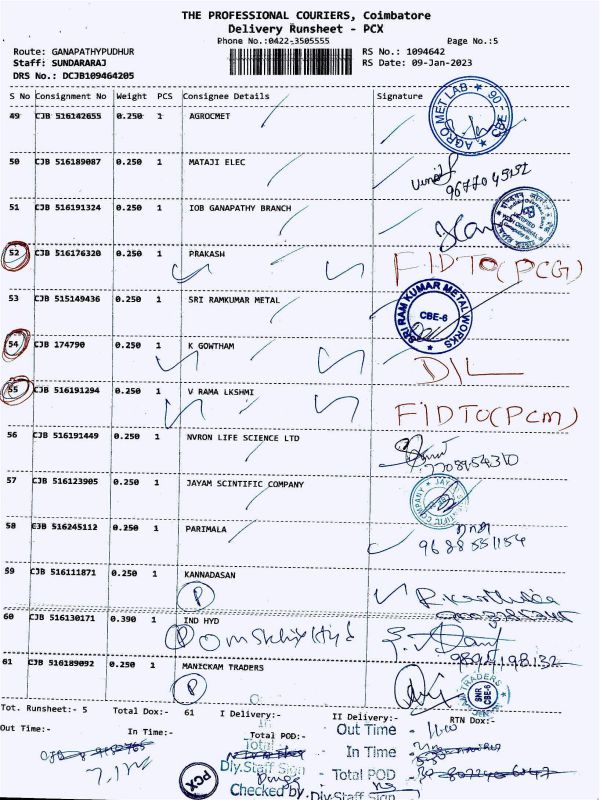 THE PROFESSIONAL COURIERS, Coimbatore
Delivery Runsheet - PCX
Phone No.:0422-3505555 Page No.:5
Route: GANAPATHYPUDHUR RS No.: 1094642
Staff: SUNDARARAJ RS Date: 09-Jan-2023
DRS No.: DCJB109464205
S No Consignment No Weight PCS Consignee Details Signature
49 CJB 516142655 0.250 1 AGROCMET
AGRO MET LAB ★ CBE - 06 ★
50 CJB 516189087 0.250 1 MATAJI ELEC
51 CJB 516191324 0.250 1 IOB GANAPATHY BRANCH
52 CJB 516176320 0.250 1 PRAKASH FIDTO(PCG)
53 CJB 515149436 0.250 1 SRI RAMKUMAR METAL
SRI RAM KUMAR METAL WORKS ★ CBE-6
54 CJB 174790 0.250 1 K GOWTHAM D/L
55 CJB 516191294 0.250 1 V RAMA LKSHMI FIDTO(PCM)
56 CJB 516191449 0.250 1 NVRON LIFE SCIENCE LTD
57 CJB 516123905 0.250 1 JAYAM SCINTIFIC COMPANY
58 CJB 516245112 0.250 1 PARIMALA
9688551154
59 CJB 516111871 0.250 1 KANNADASAN
P
60 CJB 516130171 0.390 1 IND HYD
P
9894198132
61 CJB 516189092 0.250 1 MANICKAM TRADERS
P
TRADERS SNR CBE-6
Tot. Runsheet:- 5 Total Dox:- 61 I Delivery:- II Delivery:- RTN Dox:-
Out Time:- In Time:- Total POD:- Out Time -
Total In Time -
Dly.Staff Sign Total POD -
PCX Checked by Dly.Staff Sign